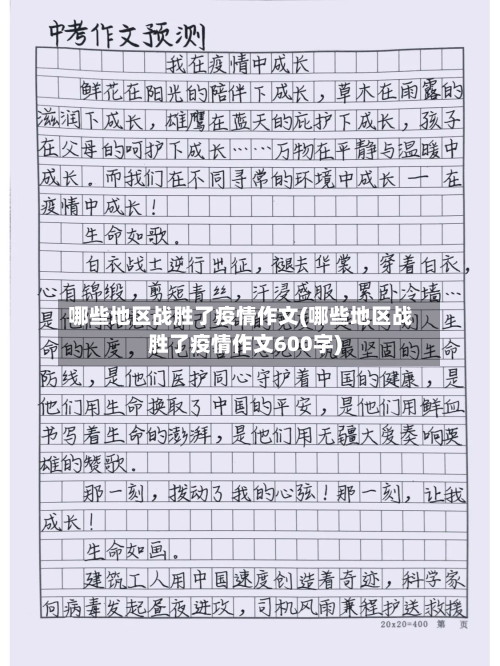 中考作文预测
我在疫情中成长
鲜花在阳光的陪伴下成长，草木在雨露的
滋润下成长，雄鹰在蓝天的庇护下成长，孩子
在父母的呵护下成长……万物在平静与温暖中
成长．而我们在不同寻常的环境中成长 — 在
疫情中成长！
生命如歌．
白衣战士逆行出征，褪去华裳，穿着白衣，
心有锦缎，剪短青丝，汗浸盛服，累卧冷墙…
哪些地区战胜了疫情作文(哪些地区战
胜了疫情作文600字)
是他
人生
命的长度，
筑最坚固的生命
防线，是他们医护同心守护着中国的健康，是
他们用生命换取了中国的平安，是他们用鲜血
书写着生命的澎湃，是他们用无疆大爱奏响英
雄的赞歌．
那一刻，拨动了我的心弦！那一刻，让我
成长！
生命如画。
建筑工人用中国速度创造着奇迹，科学家
向病毒发起昼夜进攻，司机风雨兼程护送救援
20x20=400 第 页